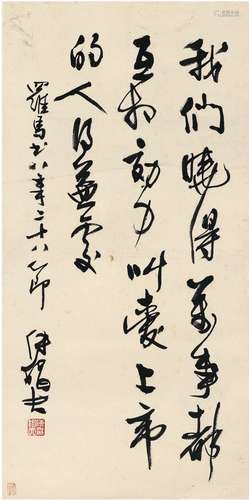 我們曉得萬事都
互相効力叫愛上帝
的人得益處
羅馬書八章二十八節